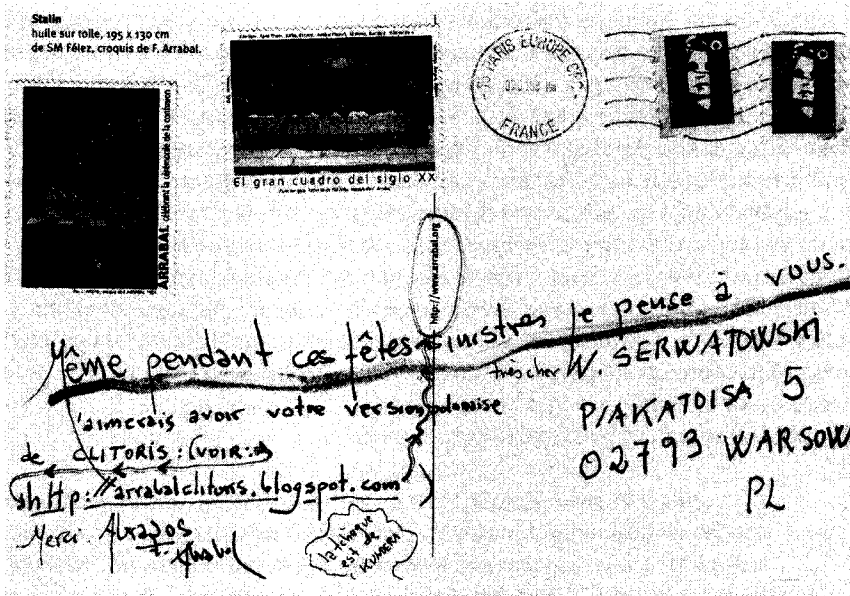 Stalin
huile sur toile, 195 x 130 cm
de SM Félez, croquis de F. Arrabal.
El gran cuadro del siglo XX
ARRABAL
PARIS EUROPE
FRANCE
http://www.arrabal.org
Même pendant ces fêtes sinistres je pense à vous.
très cher W. SERWATOWSKI
P/AKATOISA 5
02793 WARSOW
PL
j'aimerais avoir votre version polonaise
de CLITORIS : (VOIR :
http://arrabalclitoris.blogspot.com)
Merci. Abrazos
la tchèque
est de
KUNDERA